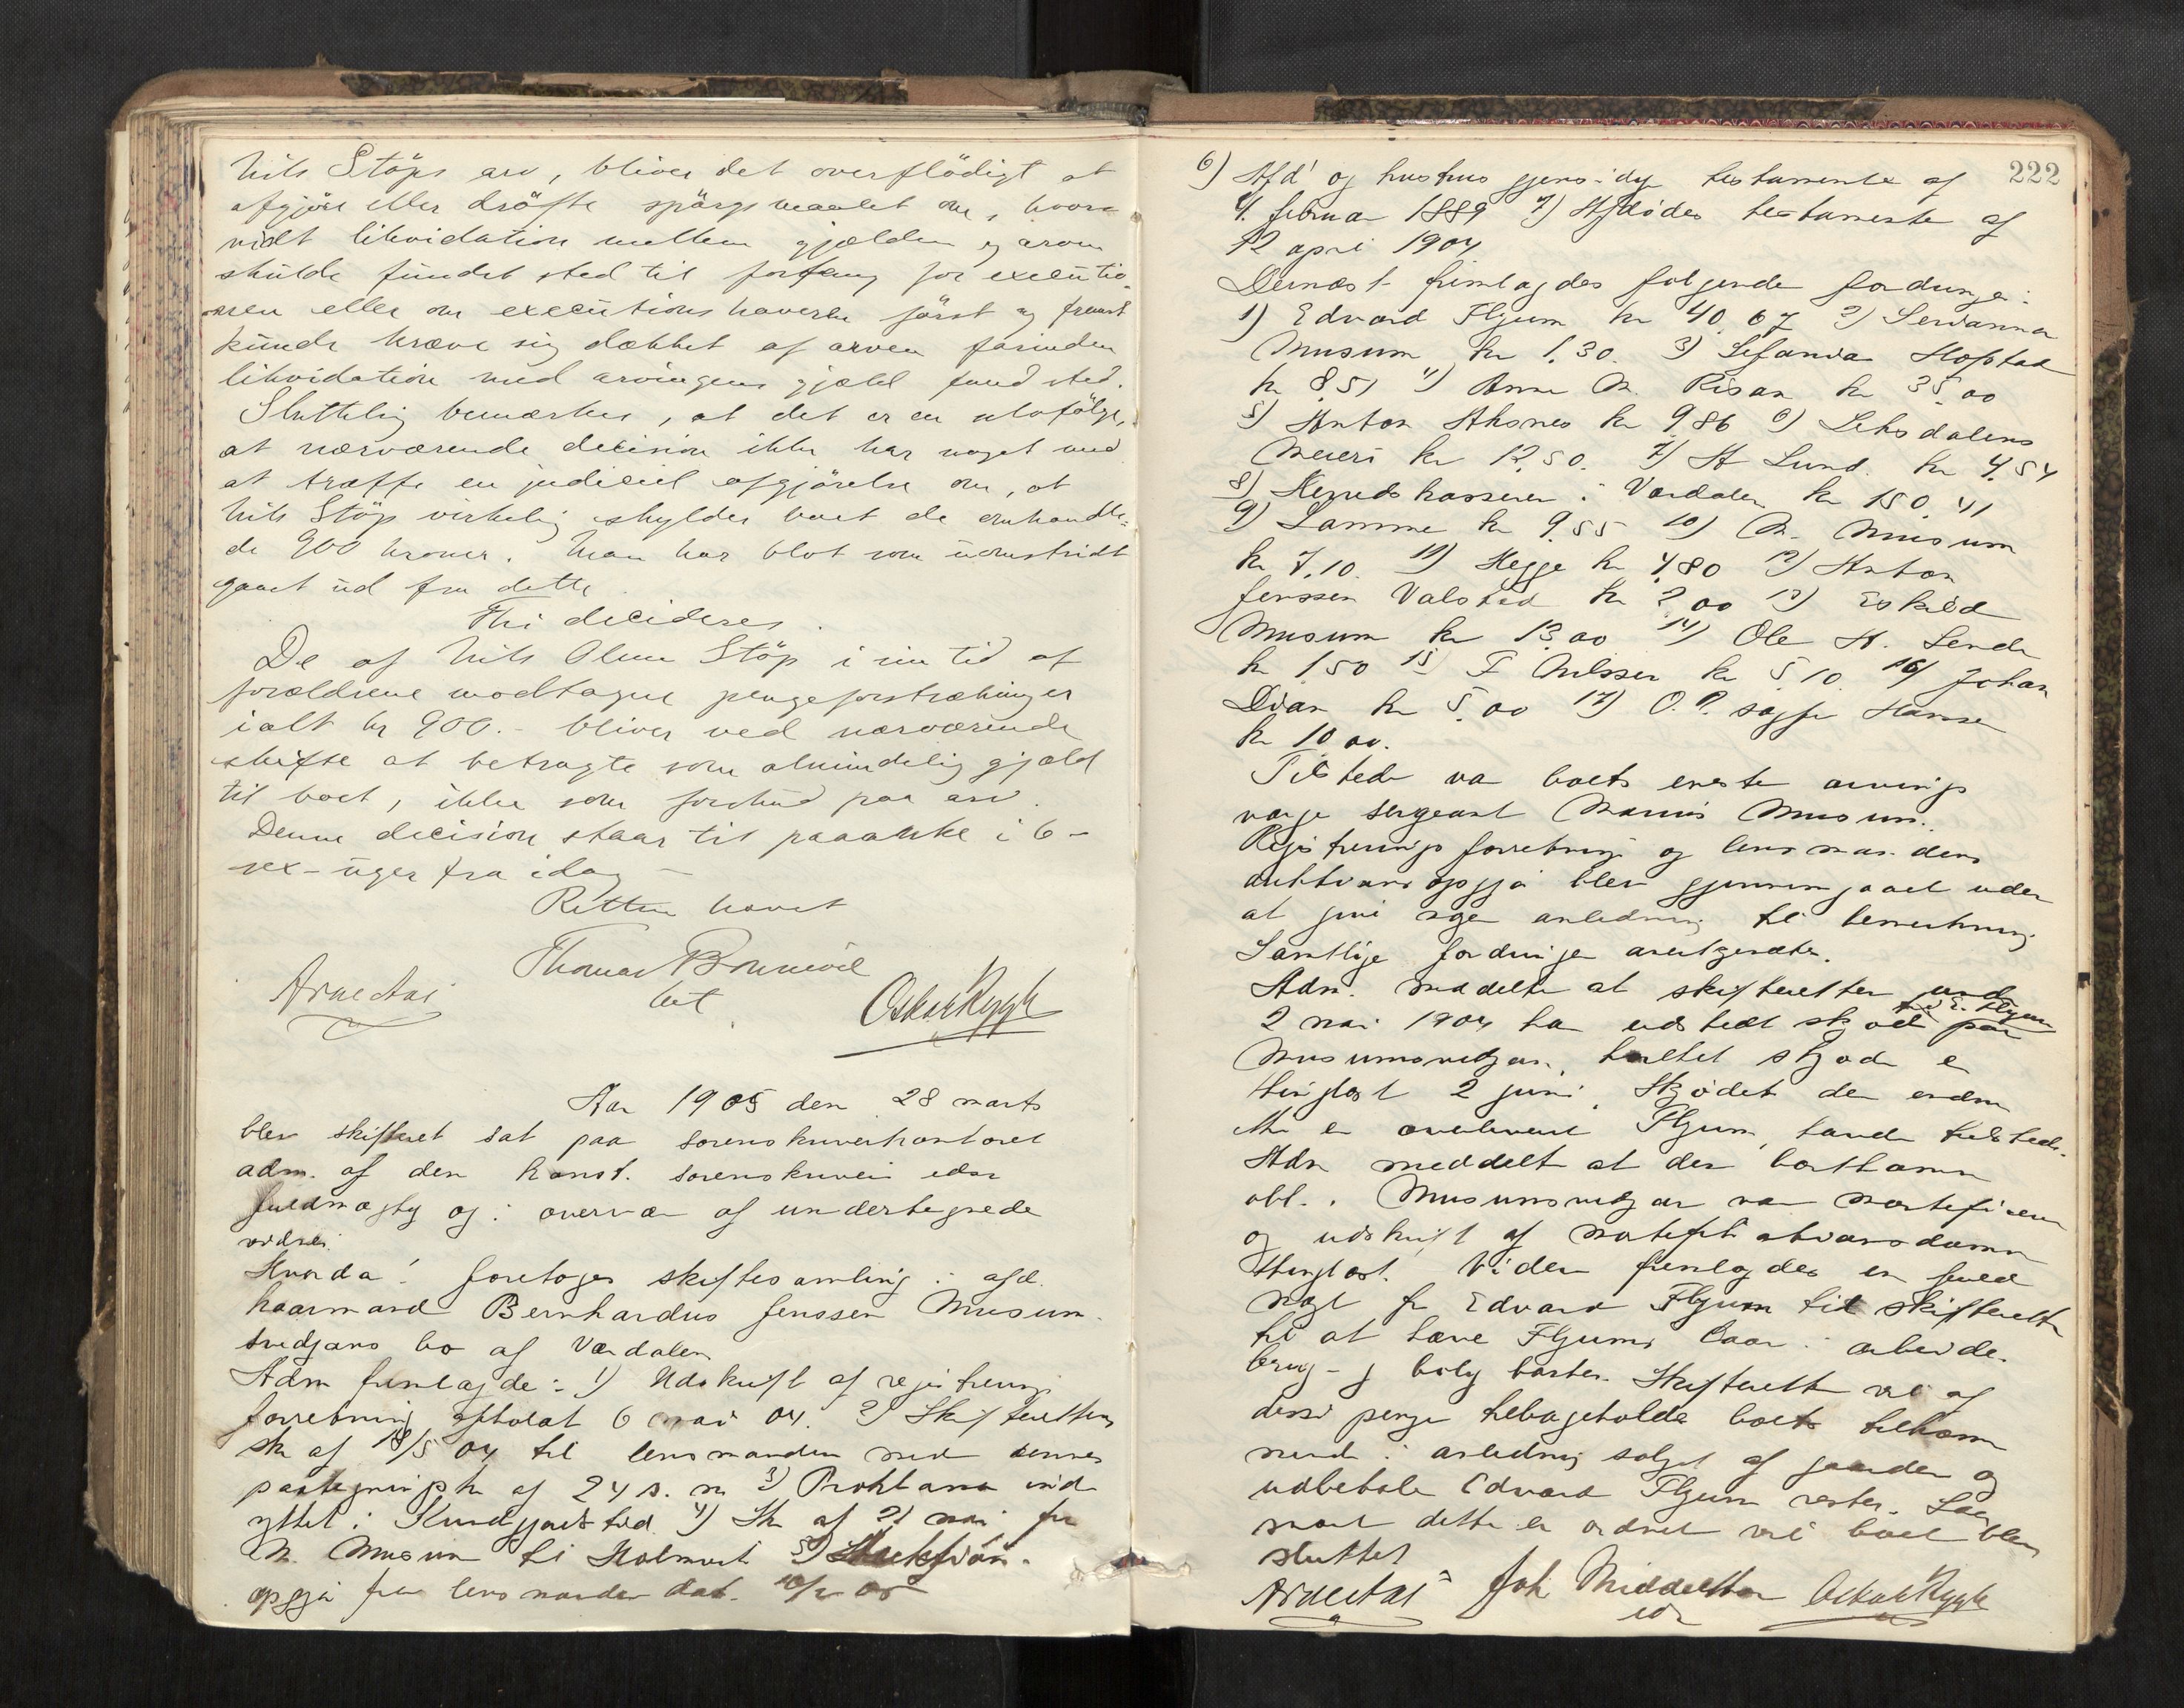 Nils Stöps arv, bliver det overflödigt at
afgjöre eller dröfte spörgsmaalet om, hvor-
vidt likvidation mellem gjælden og arven
skulde fundet sted til fortrang for executio-
nen eller om executionshaveren först og fremst
kunde kræve sig dækket af arven forinden
likvidation med arvingens gjæld fand sted.
Sluttelig bemærkes, at det er en selvfölge,
at nærværende decision ikke har noget med
at træffe en judiciel afgjörelse om, at
Nils Stöp virkelig skylder boet de omhandle-
de 900 kroner. Man har blot som uomstridt
gaaet ud fra dette.
Thi decideres.
De af Nils Olsen Stöp i sin tid af
forældrene modtagne pengeforstrækninger
ialt kr 900.- bliver ved nærværende
skifte at betragte som almindelig gjæld
til boet, ikke som forskud paa arv.
Denne decision staar til paaanke i 6-
sex-uger fra idag -
Retten hævet
Thomas Bonnevie
cst.
Arne Aas
Oskar Rygh
Aar 1905 den 28 marts
blev skifteret sat paa sorenskriverkontoret
adm. af den konst. sorenskriver edsv
fuldmægtig og i overvær af undertegnede
vidner.
Hvorda! foretoges skiftesamling i afd.
kaarmand Bernhardus Jenssen Musum-
vedjans bo af Værdalen
Adm fremlagde: 1) Udskrift af registrerings
forretning afholdt 6 mai 04. 2) Skifterettens
skr af 18/5 04 til lensmanden med dennes
paategningskr af 24 s. m 3) Proklama ind
rykket i Kundgjørtid. 4) Skr af 21 mai fra
M. Musum til Holmvik 5) Auktions-
opgjør fra lensmanden dat. 10/2 05
222
6) Afd' og hustrus gjensidige testamente af
4. februar 1889 7) Afdødes testamente af
12 april 1904
Dernæst fremlagdes følgende fordringer:
1) Edvard Flyum kr 40.67 2) Serianna
Musum kr 1.30. 3) Sefanias Hofstad
kr 8.51 4) Anne M. Risan kr 35.00
5) Anton Aksnes kr 9.86 6) Leksdalens
Meieri kr 12.50. 7) A Lund. kr 4.54
8) Herredskasseren i Værdalen kr 150.41
9) Samme kr 9.55 10) M. Musum
kr 7.10. 11) Hegge kr 4.80 12) Anton
Jenssen Valstad kr 2.00 13) Eskild
Musum kr 13.00 14) Ole A. Sende
kr 1.50 15) F Nilssen kr 5.10. 16) Johan
kr 5.00 17) O. P. Hansen
kr 10.00.
Tilstede var boets eneste arvings
værge sergeant Marius Musum.
Registrerings forretning og lensmandens
auktionsopgjør blev gjennemgaaet uden
at give nogen anledning til bemerkning
Samtlige fordringer anerkjendtes.
Adm. meddelte at skifteretten under
2 mai 1904 har udstedt skjøde til E. Flyum paa
Musumsvedjan, hvilket skjøde er
thinglæst 2 juni. Skjødet der endnu
ikke er overleveret Flyum, havdes tilstede.
Adm meddelte at den bortkomne
obl. i Musumsvedjan var mortificeret
og udskrift af mortifikationsdommen
thinglæst. Videre fremlagdes en fuld
magt fra Edvard Flyum til skifteretten
til at hæve Flyums laan i arbeider-
brug- og boligbanken. Skifteretten vil af
disse penge tilbageholde boets tilkom-
mende i anledning salget af gaarden og
udbetale Edvard Flyum resten. Saa
snart dette er ordnet vil boet blive
sluttet
Arne Aas Joh Middelthon Oskar Rygh
edsv